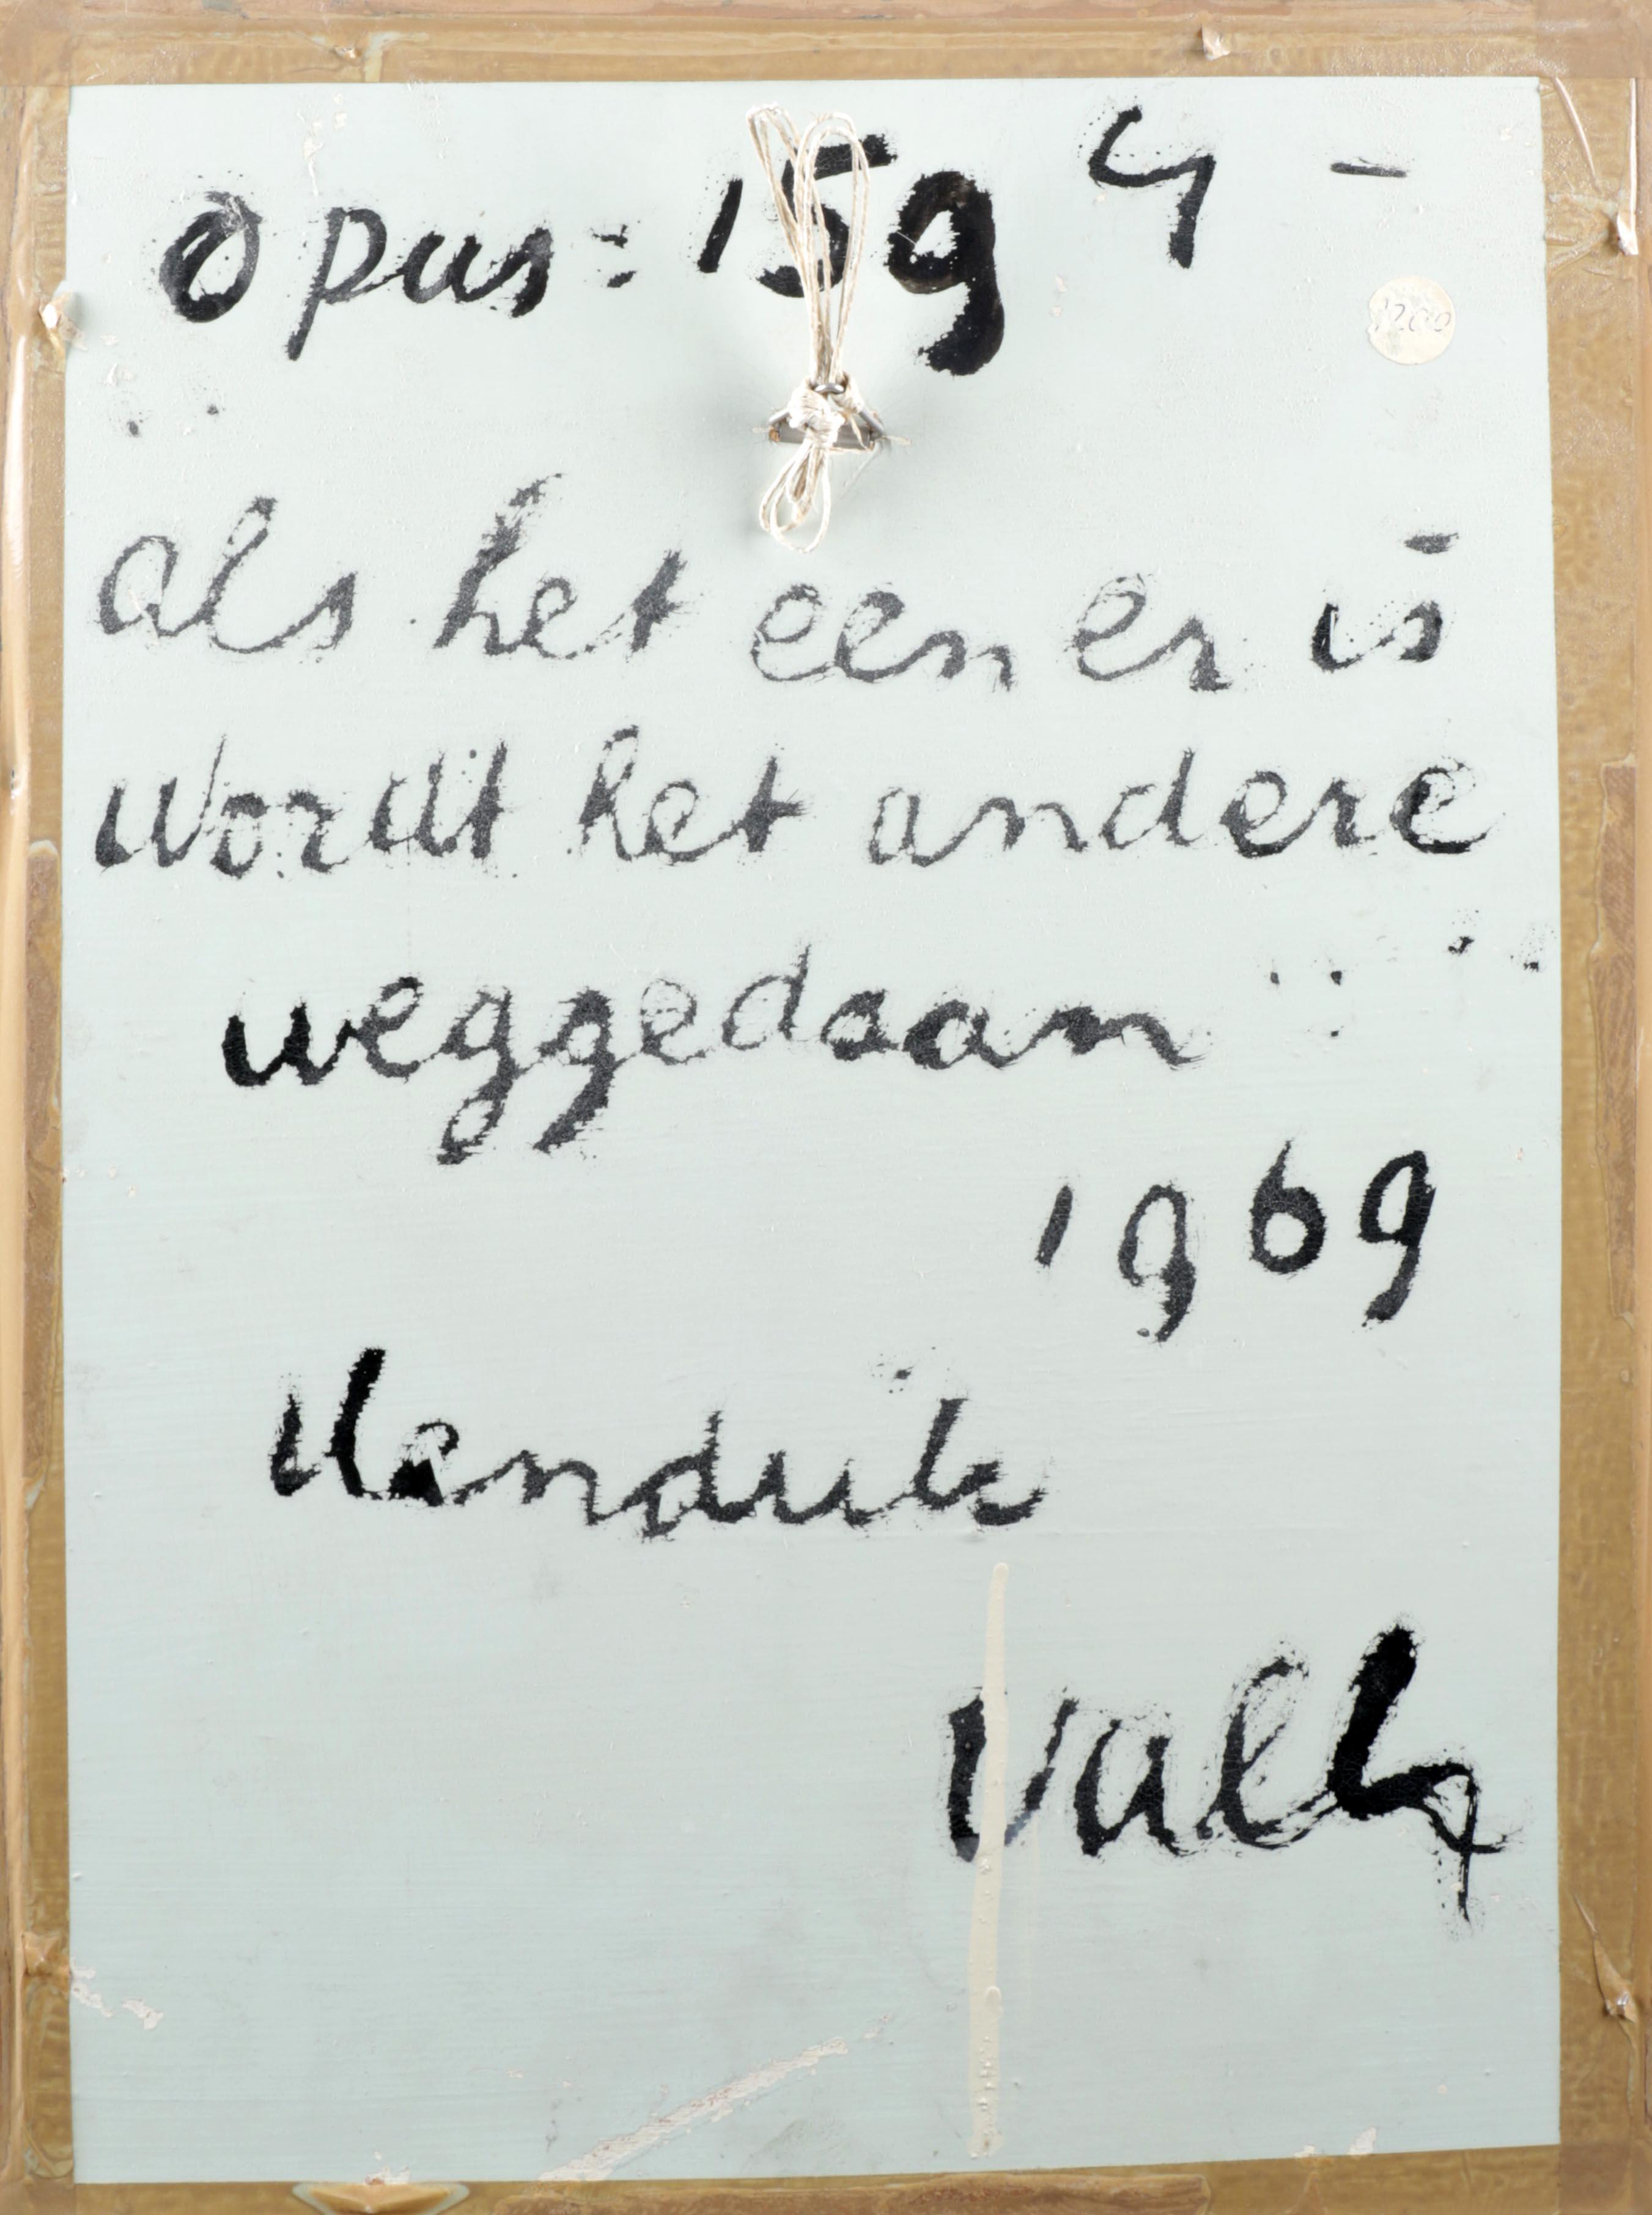 opus: 1594 -
als het een er is
wordt het andere
weggedaan
1969
Hendrik
Valk